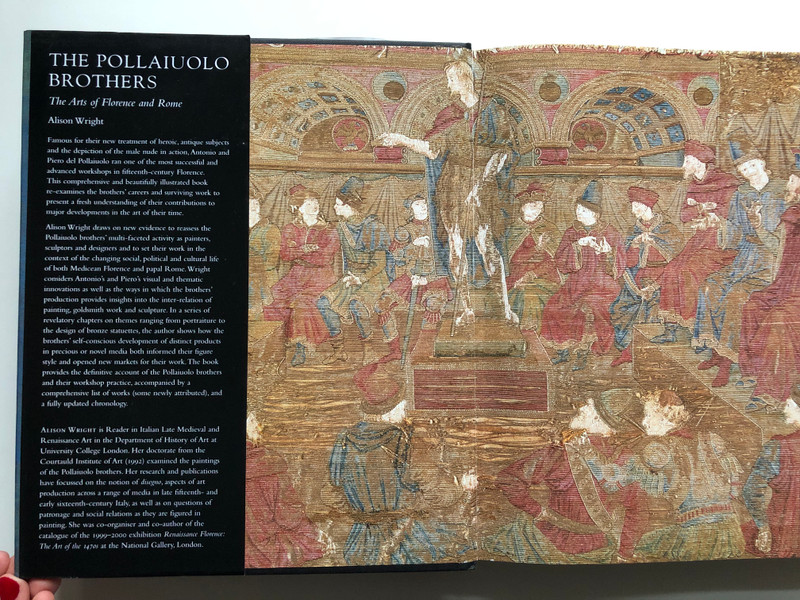 THE POLLAIUOLO
BROTHERS
The Arts of Florence and Rome
Alison Wright
Famous for their new treatment of heroic, antique subjects
and the depiction of the male nude in action, Antonio and
Piero del Pollaiuolo ran one of the most successful and
advanced workshops in fifteenth-century Florence.
This comprehensive and beautifully illustrated book
re-examines the brothers' careers and surviving work to
present a fresh understanding of their contributions to
major developments in the art of their time.
Alison Wright draws on new evidence to reassess the
Pollaiuolo brothers' multi-faceted activity as painters,
sculptors and designers and to set their work in the
context of the changing social, political and cultural life
of both Medicean Florence and papal Rome. Wright
considers Antonio's and Piero's visual and thematic
innovations as well as the ways in which the brothers'
production provides insights into the inter-relation of
painting, goldsmith work and sculpture. In a series of
revelatory chapters on themes ranging from portraiture to
the design of bronze statuettes, the author shows how the
brothers' self-conscious development of distinct products
in precious or novel media both informed their figure
style and opened new markets for their work. The book
provides the definitive account of the Pollaiuolo brothers
and their workshop practice, accompanied by a
comprehensive list of works (some newly attributed), and
a fully updated chronology.
ALISON WRIGHT is Reader in Italian Late Medieval and
Renaissance Art in the Department of History of Art at
University College London. Her doctorate from the
Courtauld Institute of Art (1992) examined the paintings
of the Pollaiuolo brothers. Her research and publications
have focussed on the notion of disegno, aspects of art
production across a range of media in late fifteenth- and
early sixteenth-century Italy, as well as on questions of
patronage and social relations as they are figured in
painting. She was co-organiser and co-author of the
catalogue of the 1999–2000 exhibition Renaissance Florence:
The Art of the 1470s at the National Gallery, London.